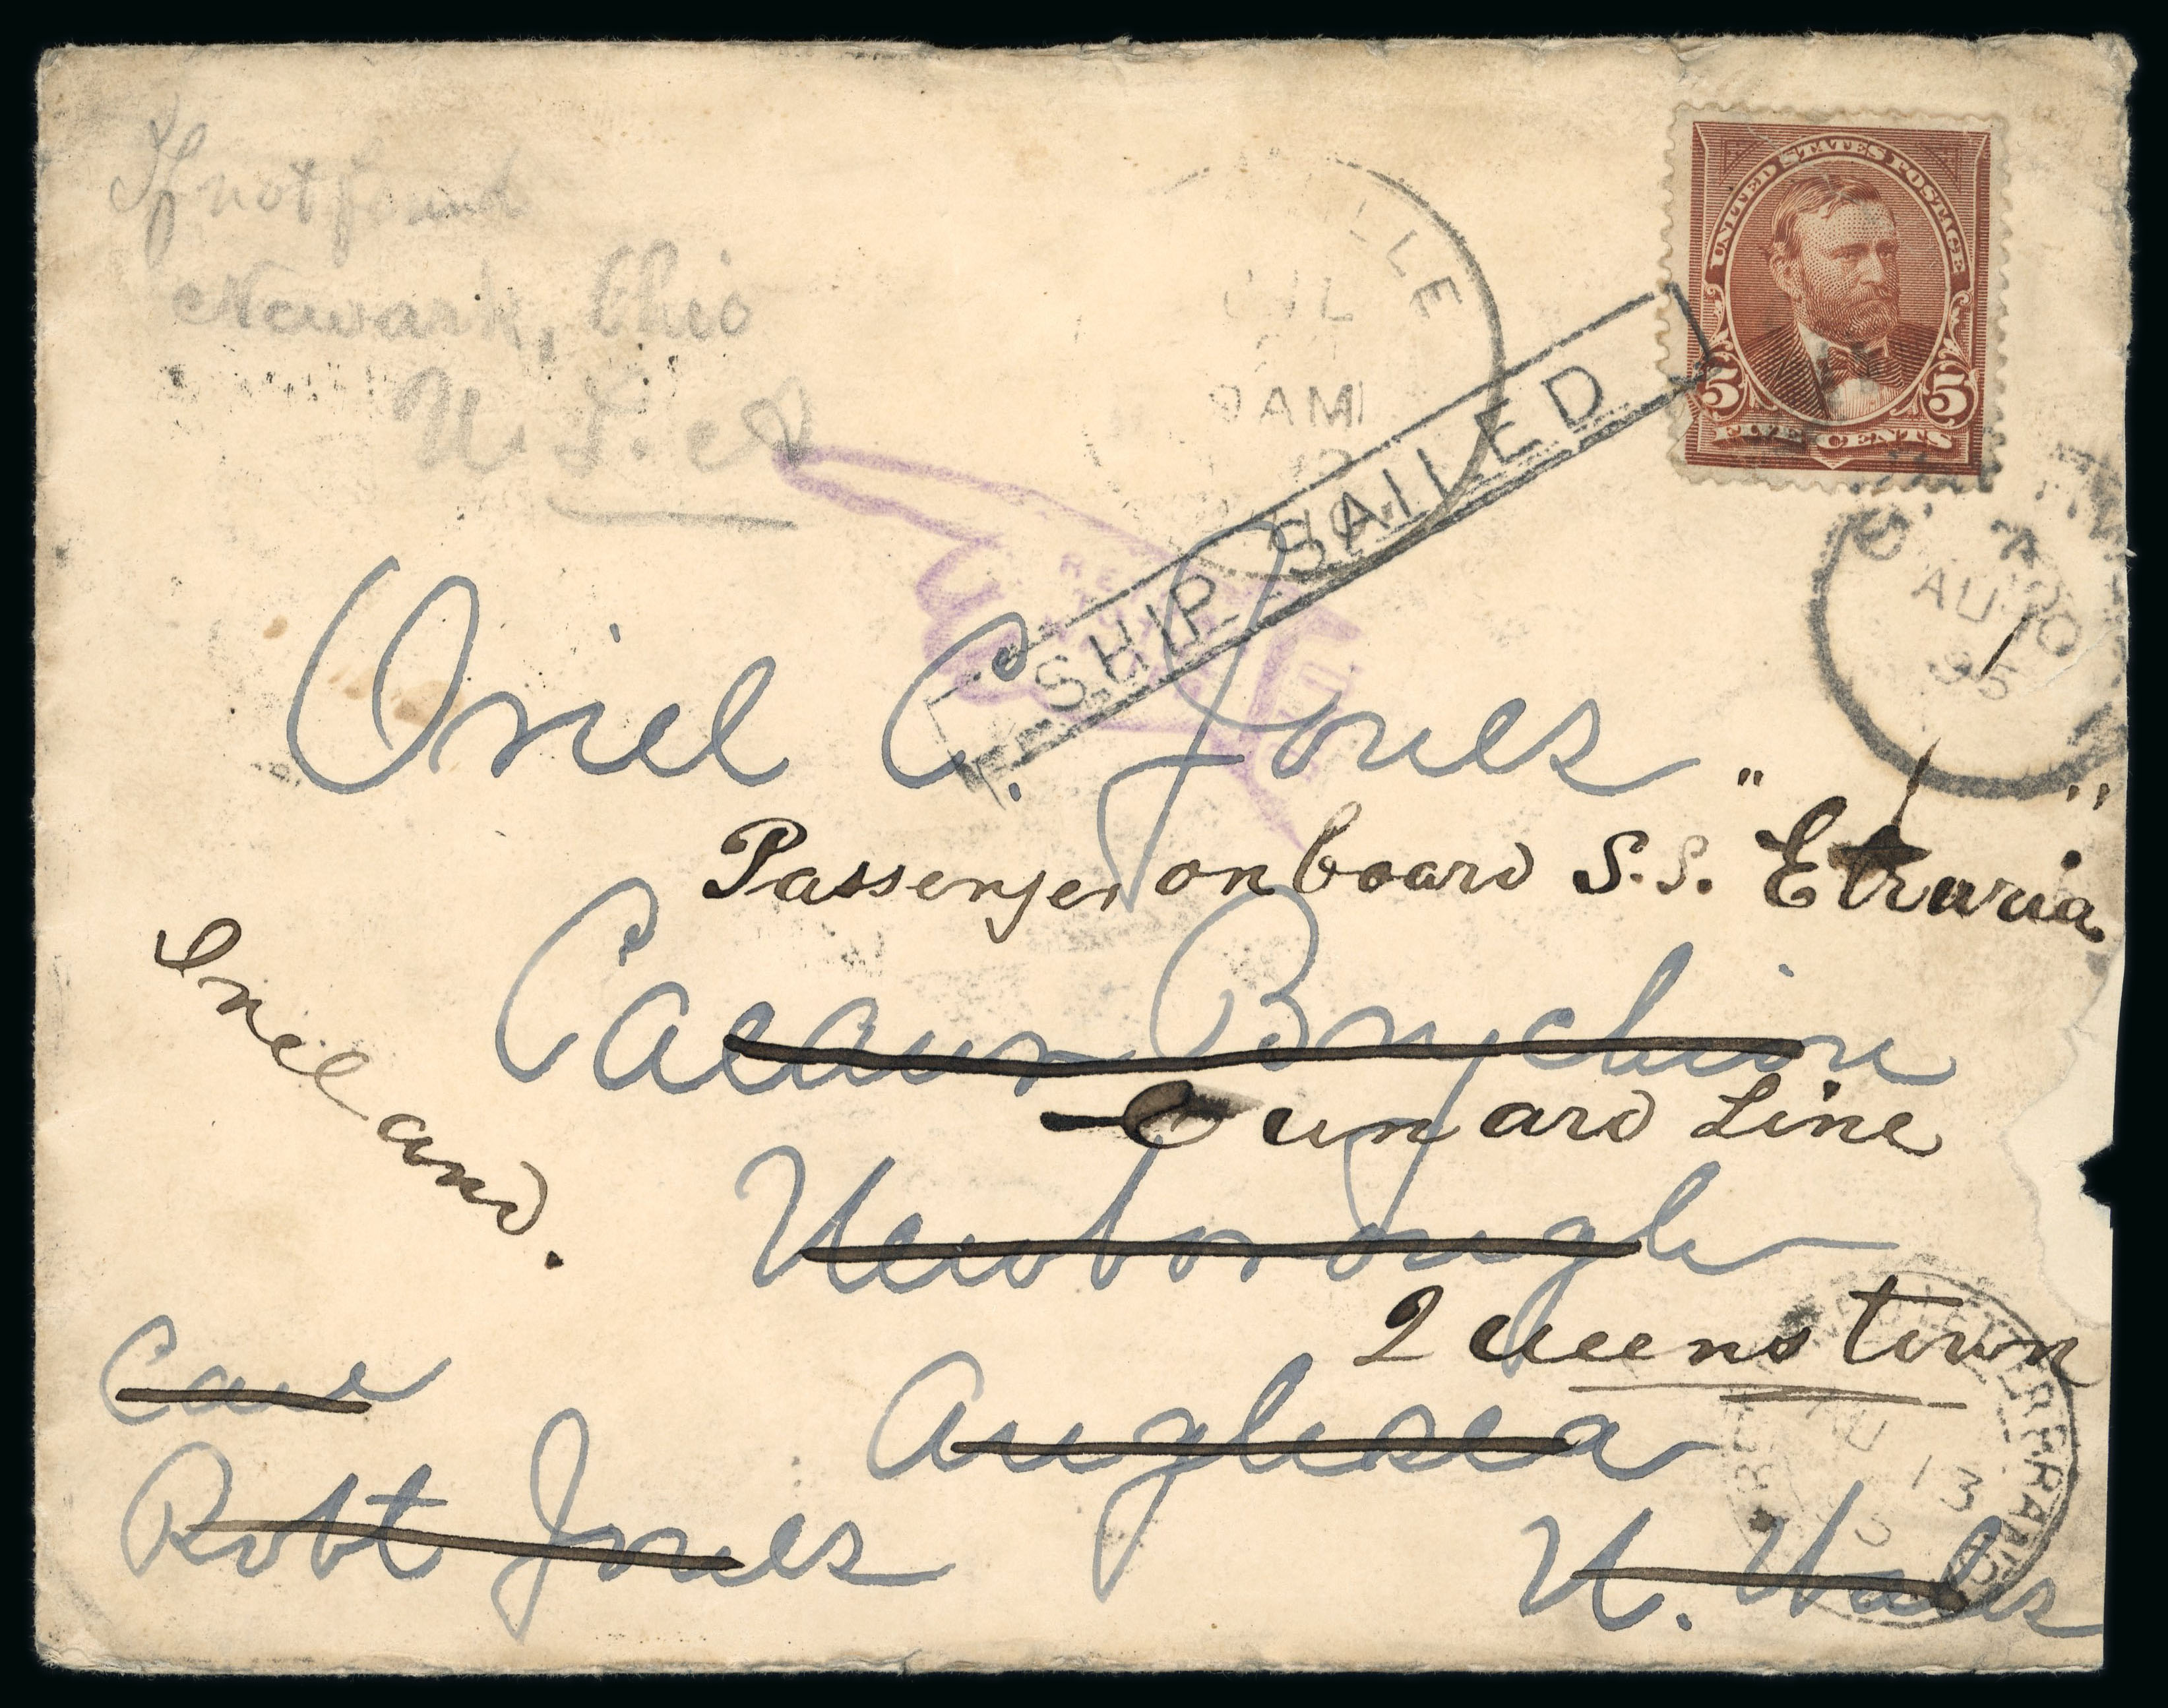 If not found
Newark, Ohio
U. S. A
UNITED STATES POSTAGE
5 5
FIVE CENTS
LLE
9 AM
SHIP SAILED
AU 10
95
Oriel C. Jones
Passenger on board S.S. "Etruria"
Caeaur Brychion
Cunard Line
Newborough
Queenstown
Ireland.
Care
Anglesea
Robt Jones
N. Wales
AU 13